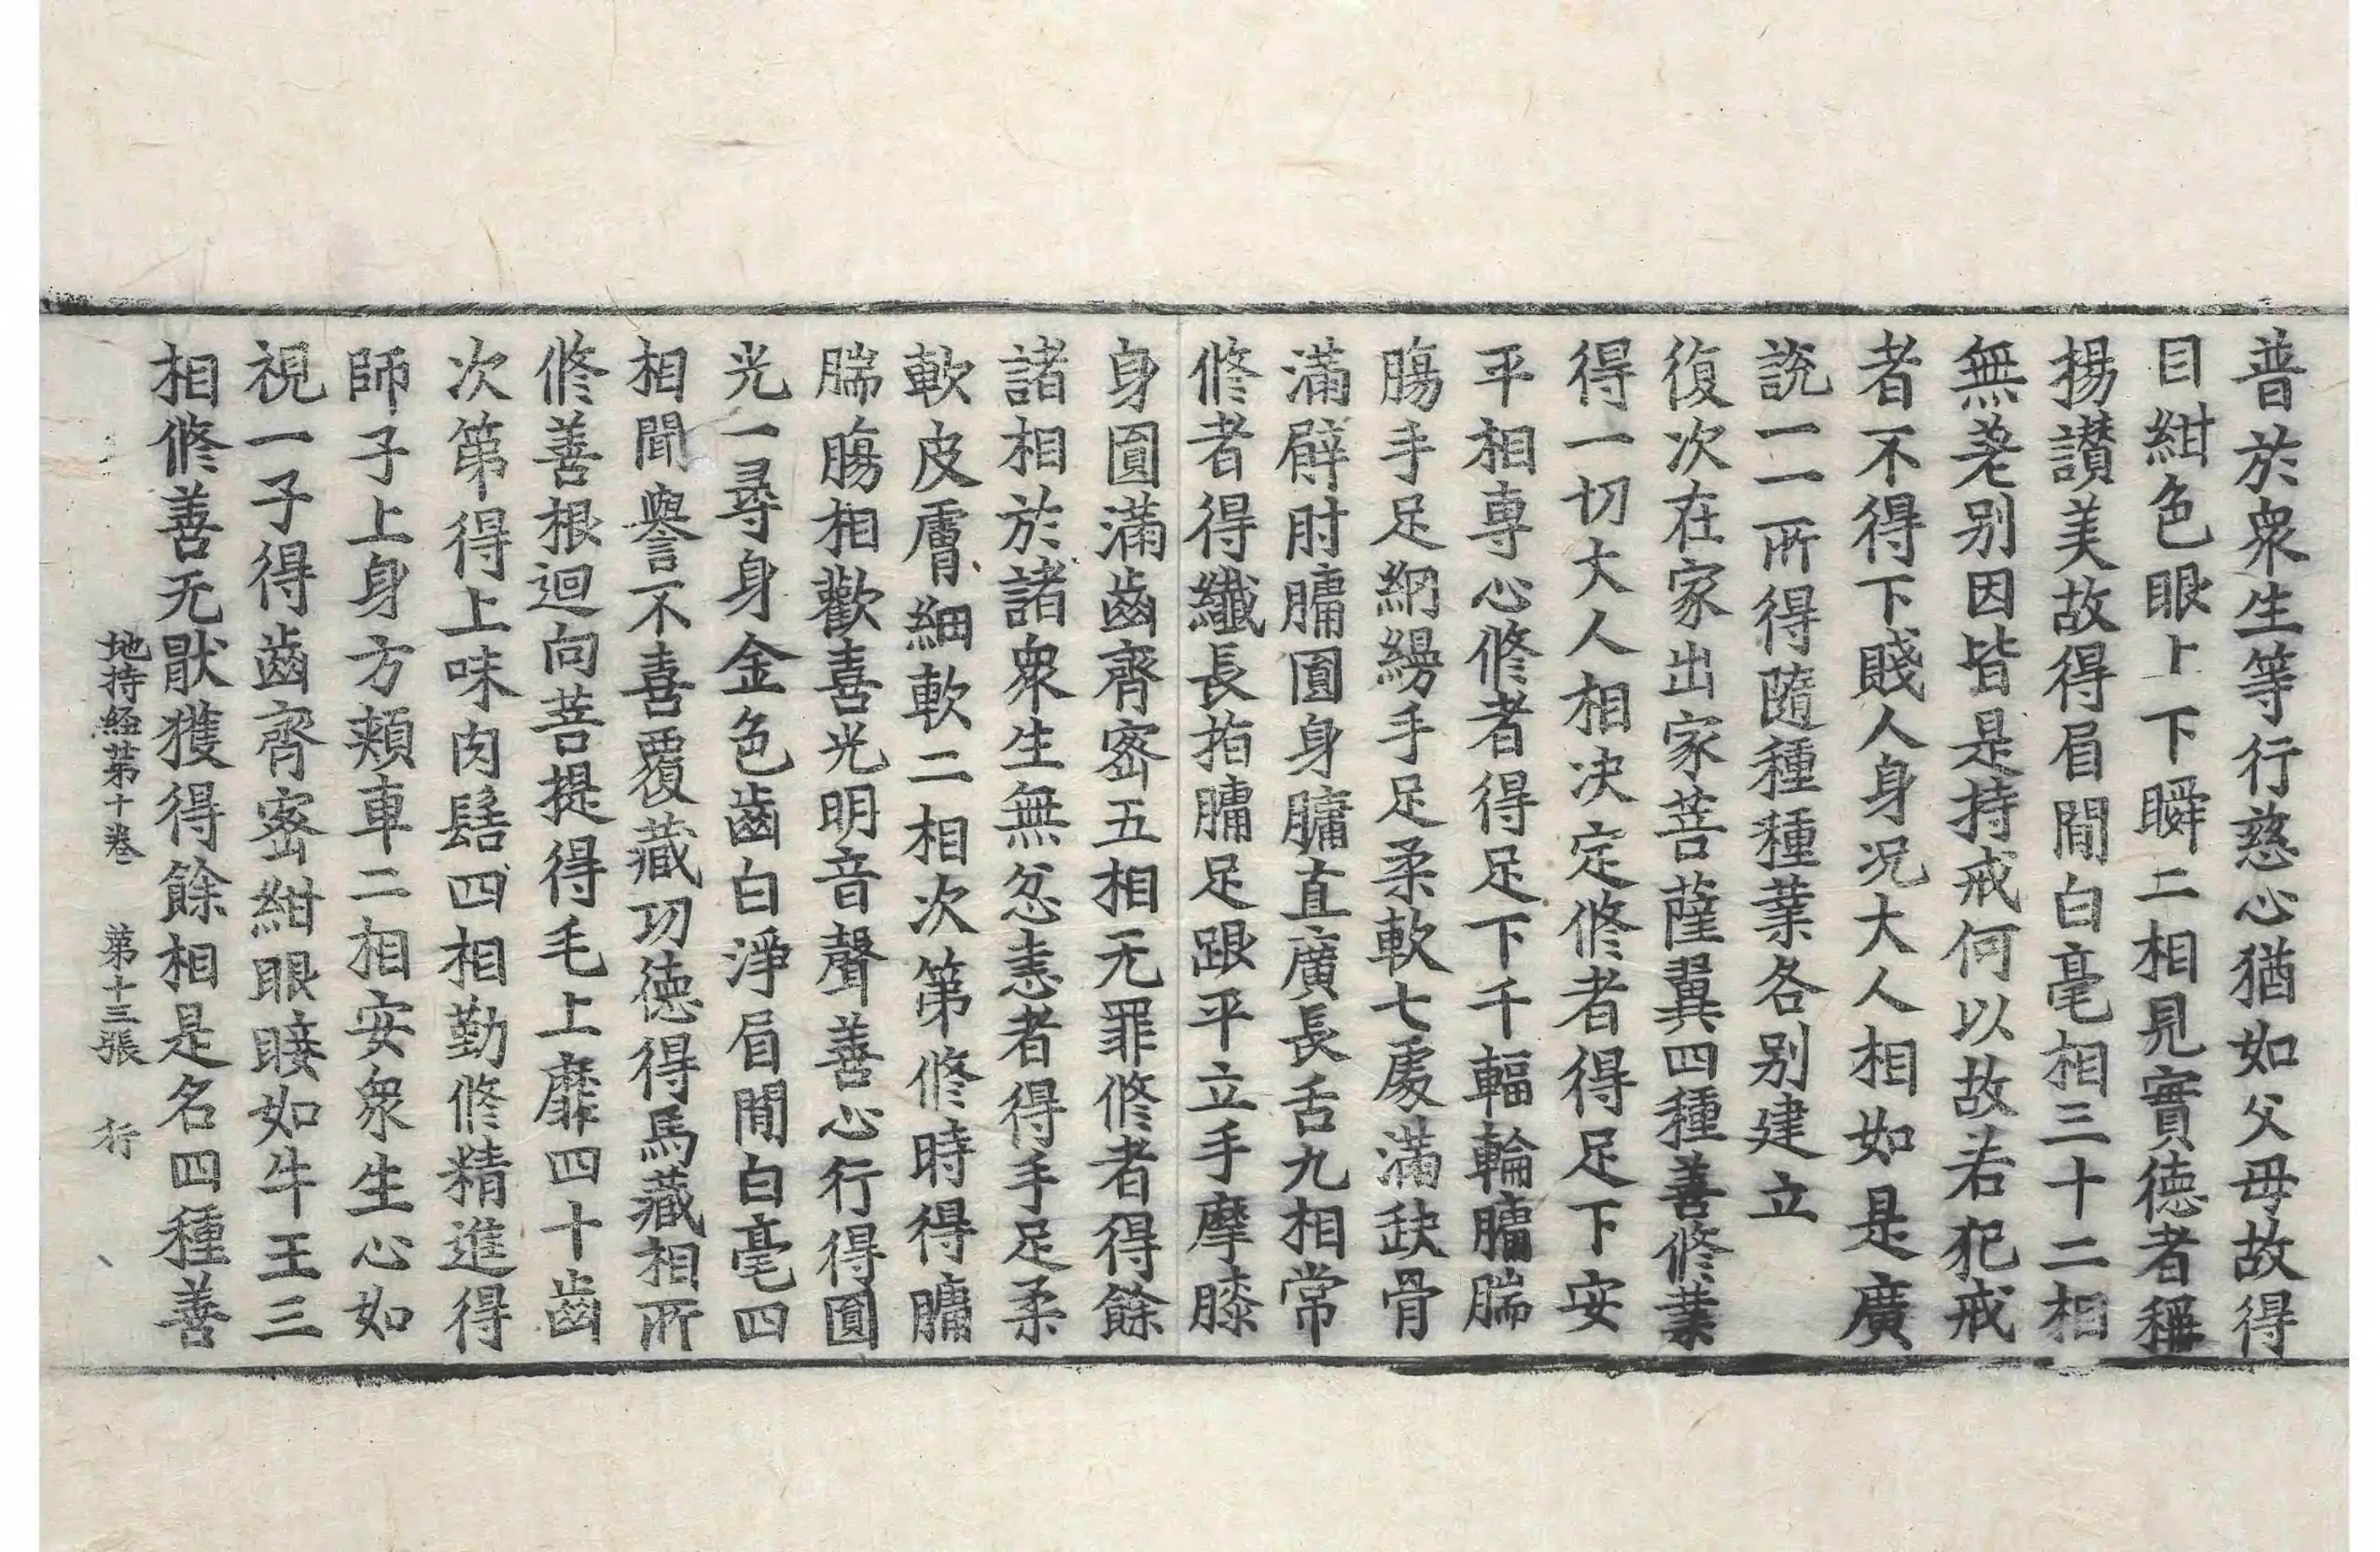 普於衆生等行慈心猶如父母故得
目紺色眼上下瞬二相見實德者稱
揚讃美故得眉閒白毫相三十二相
無差别因皆是持戒何以故若犯戒
者不得下賤人身况大人相如是廣
説一一所得隨種種業各别建立
復次在家出家菩薩翼四種善修業
得一切大人相决定修者得足下安
平相專心修者得足下千輻輪𦟛腨
膓手足網縵手足柔軟七處滿𡙇骨
滿臂肘𦟛圓身𦟛直廣長舌九相常
修者得纖長指𦟛足跟平立手摩膝
身圓滿齒齊宻五相无罪修者得餘
諸相於諸衆生無忿恚者得手足柔
軟皮膚細軟二相次第修時得𦟛
腨膓相歡喜光明音聲善心行得圓
光一尋身金色齒白淨眉閒白毫四
相聞譽不喜覆藏功德得馬藏相所
修善根迴向菩提得毛上靡四十齒
次第得上味肉髻四相勤修精進得
師子上身方頰車二相安衆生心如
視一子得齒齊宻紺眼睫如牛王三
相修善无猒獲得餘相是名四種善
地持經第十卷 第十三張 行